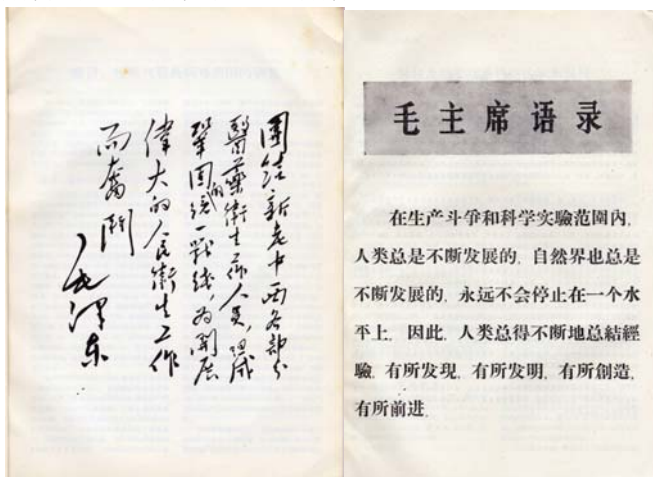 團结新老中西各部分
醫藥衛生工作人員，组成
鞏固的统一戰线，为開展
偉大的人民衛生工作
而奮鬥
毛泽东
毛主席语录
在生产斗爭和科学实驗范圍內，
人类总是不断发展的，自然界也总是
不断发展的，永远不会停止在一个水
平上。因此，人类总得不断地总結經
驗，有所发現，有所发明，有所創造，
有所前进。